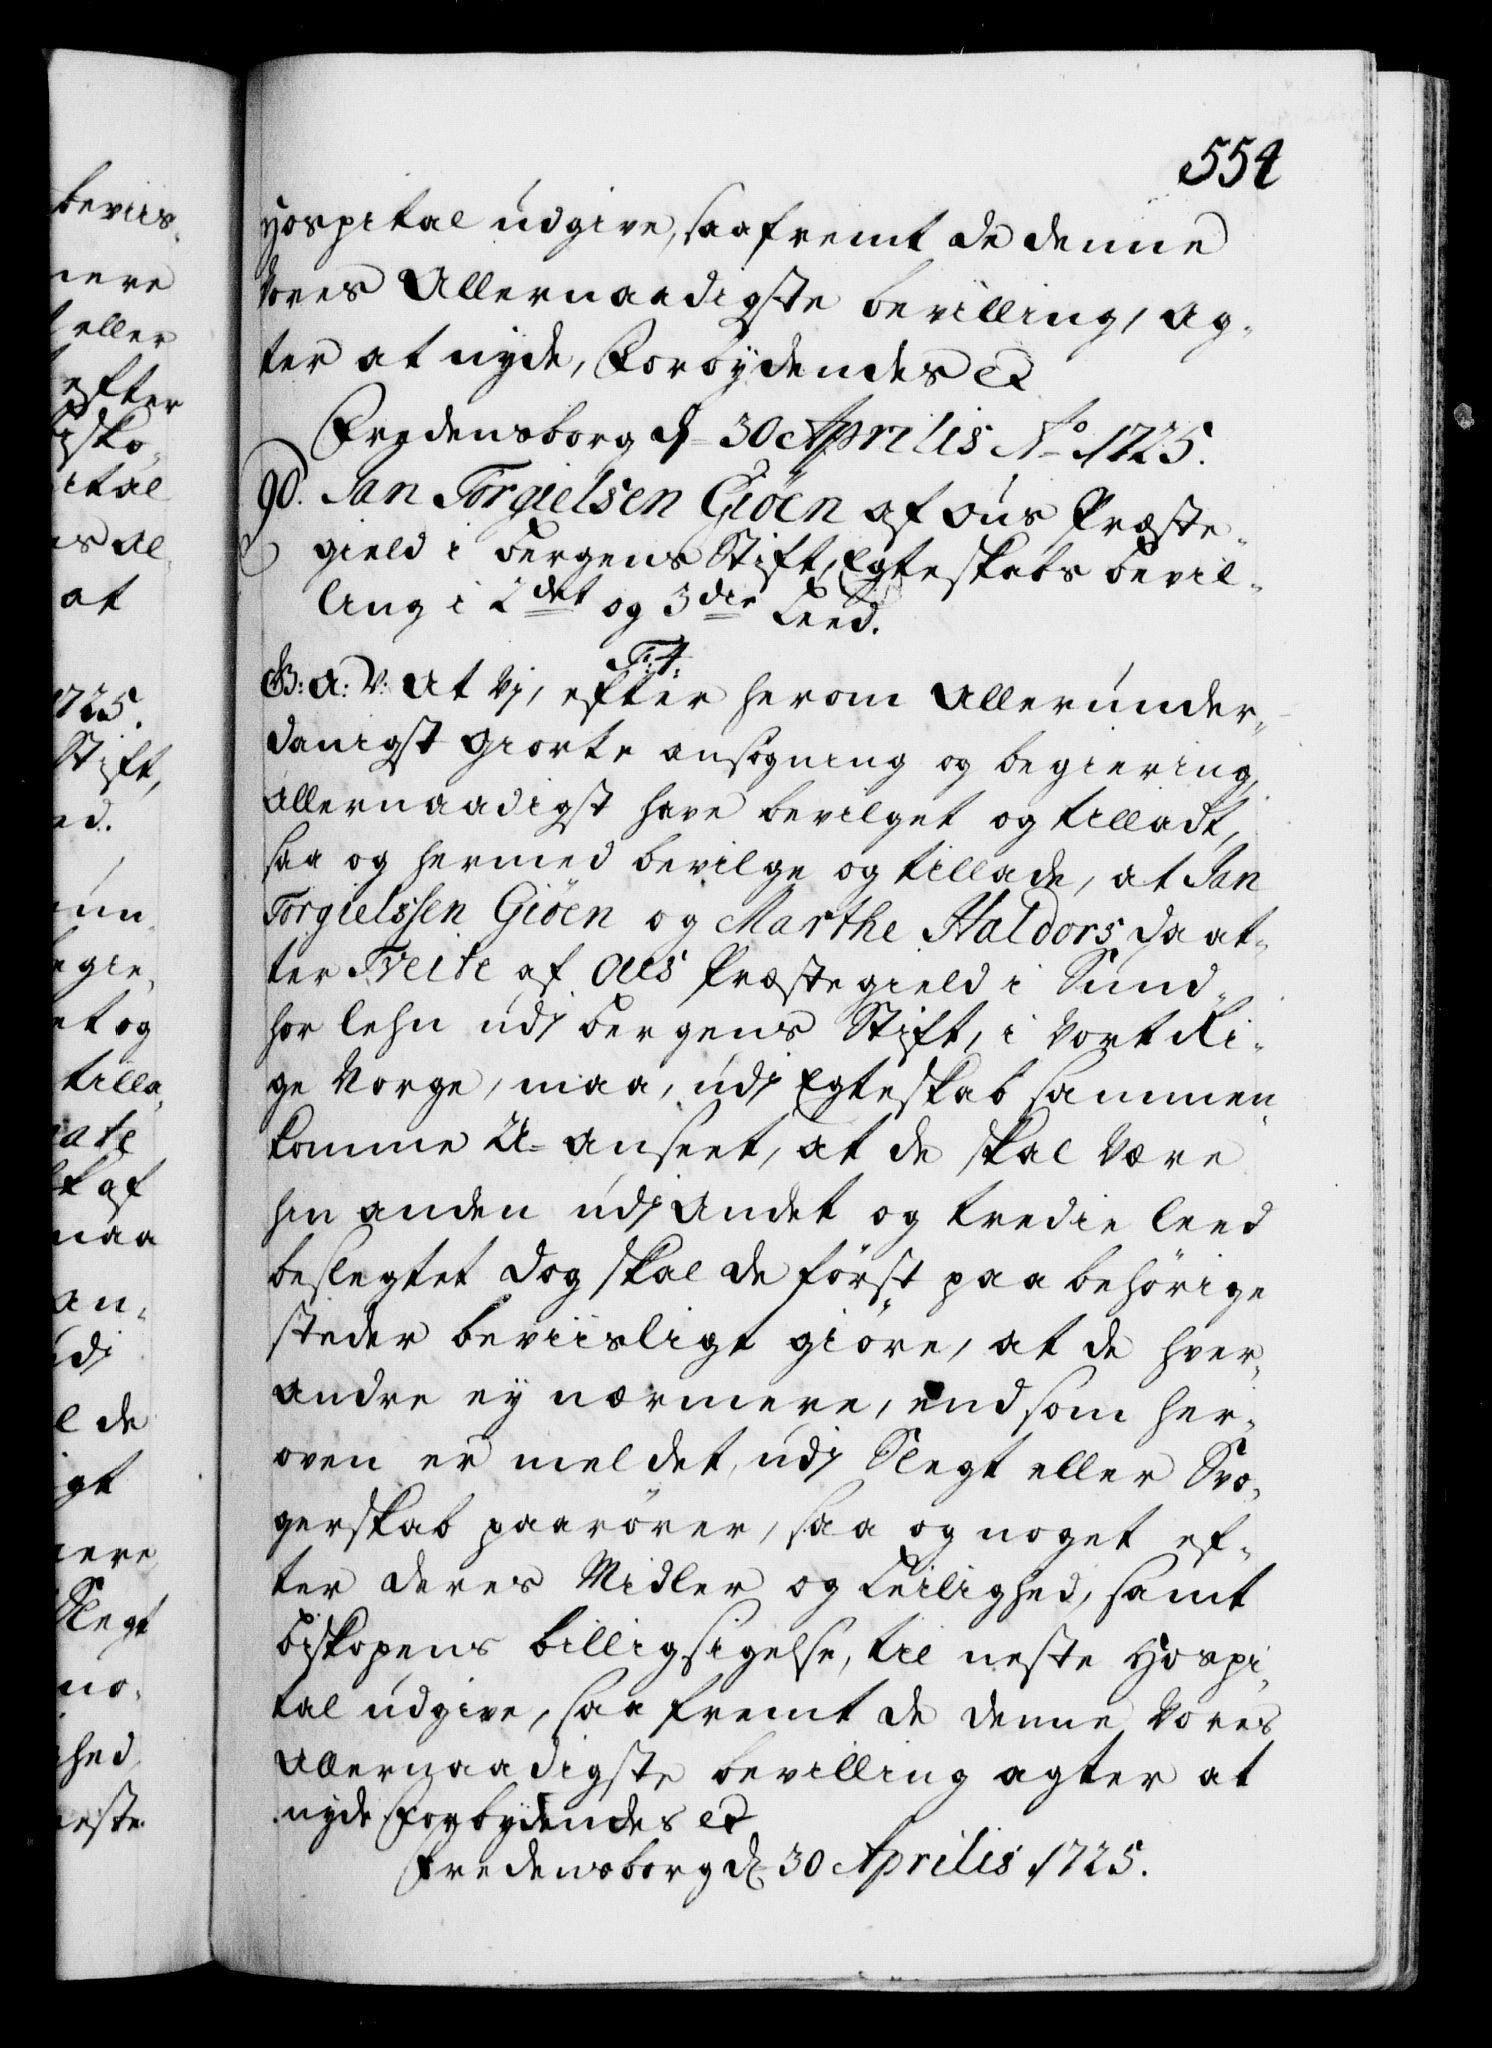 554
Hospital udgive, saafremt de denne
Vores Allernaadigste bevilling, ag-
ter at nyde, Forbydendes etc
Fredensborg d. 30 Aprilis Ao 1725.
90. Jan Torgielsen Giöen af Ous Præste-
gield i Bergens Stift, Egteskabs bevil-
ling i 2det og 3die Leed.
F: 4:
G: A: V: At Vj, efter herom Allerunder-
danigst giorte ansøgning og begiering,
Allernaadigst have bevilget og tilladt,
saa og hermed bevilge og tillade, at Jan
Torgielssen Giöen og Marthe Haldors Daat-
ter Tveite af Oes Præstegield i Sund-
hor lehn udj Bergens Stift, i Vort Ri-
ge Norge, maa, udj Egteskab sammen-
komme U-anseet, at de skal være
hin anden udj Andet og tredie leed
beslegtet dog skal de först paa behörige
steder beviisligt giöre, at de hver-
andre ey nærmere, end som her-
oven er meldet, udj Slegt eller Svo-
gerskab paarörer, saa og noget ef-
ter deres Midler og Leilighed, samt
Biskopens billigsigelse, til neste Hospi-
tal udgive, saa fremt de denne Vores
Allernaadigste bevilling agter at
nyde Forbydendes etc
Fredensborg d. 30 Aprilis 1725.